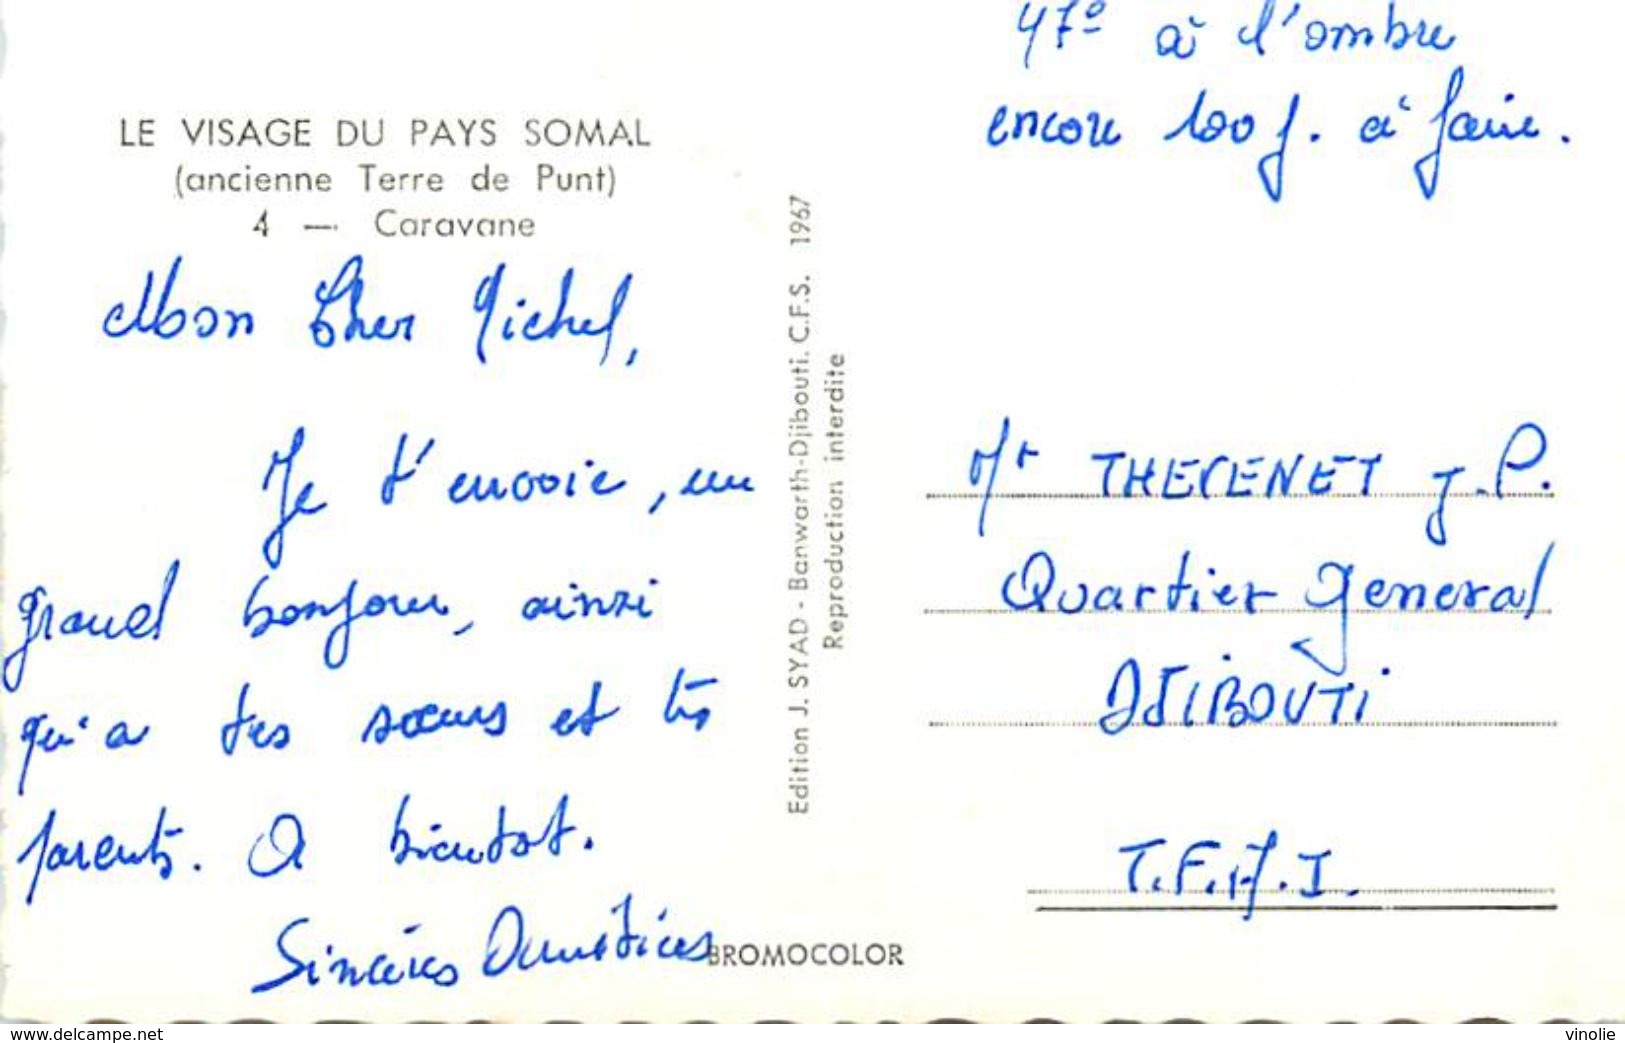 47° à l'ombre
encore 100 j. à faire.
LE VISAGE DU PAYS SOMAL
(ancienne Terre de Punt)
4 — Caravane
Mon Cher Michel,
Je t'envoie, un
grand bonjour, ainsi
qu'a tes sœurs et tes
parents. A bientot.
Sincères Amitiés
Edition J. SYAD - Banwarth-Djibouti. C.F.S. 1967
Reproduction interdite
Mr THEVENET J.P.
Quartier General
DJIBOUTI
T.F.A.I.
BROMOCOLOR
www.delcampe.net
vinolie